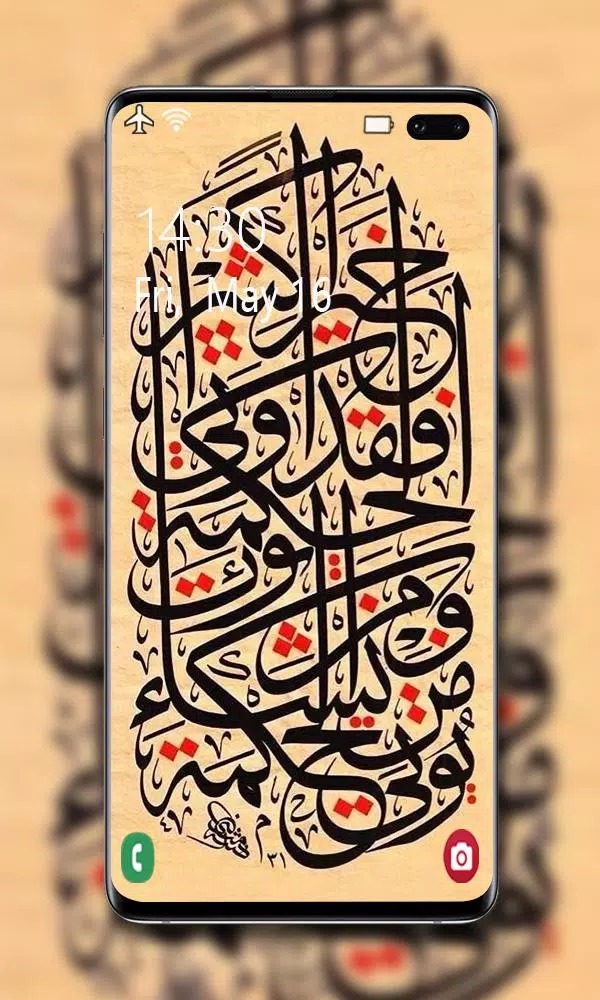 14:30
Fri, May 16
يؤتي الحكمة
من يشاء
ومن يؤت
الحكمة
فقد أوتي
خيرا كثيرا